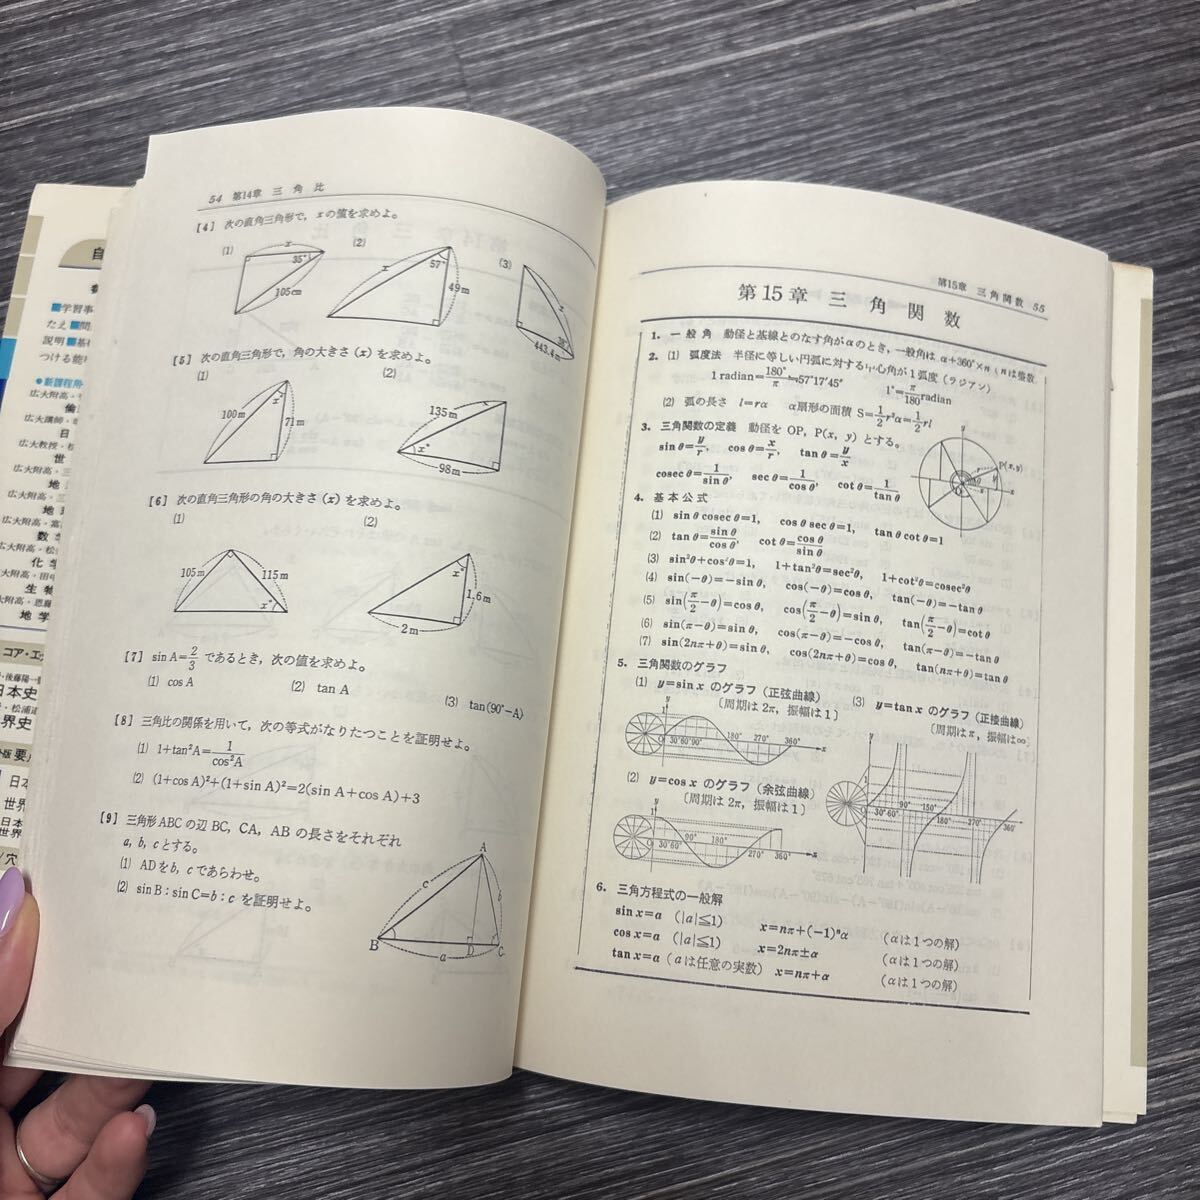 54 第14章 三角比
[4] 次の直角三角形で，xの値を求めよ。
(1) (2) (3)
x 35° 105cm
x 57° 49m
x 443.4m
[5] 次の直角三角形で，角の大きさ(x)を求めよ。
(1) (2)
100m x 71m
135m x° 98m
[6] 次の直角三角形の角の大きさ(x)を求めよ。
(1) (2)
105m 115m x°
x° 1.6m 2m
[7] sin A=2/3 であるとき，次の値を求めよ。
(1) cos A (2) tan A (3) tan(90°−A)
[8] 三角比の関係を用いて，次の等式がなりたつことを証明せよ。
(1) 1+tan²A=1/cos²A
(2) (1+cos A)²+(1+sin A)²=2(sin A+cos A)+3
[9] 三角形ABCの辺BC，CA，ABの長さをそれぞれ
a, b, cとする。
(1) ADをb, cであらわせ。
(2) sin B : sin C=b : c を証明せよ。
A c b B D C a
第15章 三角関数 55
第15章 三角関数
1. 一般角 動径と基線とのなす角がαのとき，一般角は α+360°×n nは整数
2. (1) 弧度法 半径に等しい円弧に対する中心角が1弧度(ラジアン)
1 radian=180°/π≒57°17′45″ 1°=π/180 radian
(2) 弧の長さ l=rα α扇形の面積 S=1/2 r²α=1/2 rl
3. 三角関数の定義 動径を OP, P(x, y) とする。
sin θ=y/r, cos θ=x/r, tan θ=y/x
cosec θ=1/sin θ, sec θ=1/cos θ, cot θ=1/tan θ
P(x, y)
4. 基本公式
(1) sin θ cosec θ=1, cos θ sec θ=1, tan θ cot θ=1
(2) tan θ=sin θ/cos θ, cot θ=cos θ/sin θ
(3) sin²θ+cos²θ=1, 1+tan²θ=sec²θ, 1+cot²θ=cosec²θ
(4) sin(−θ)=−sin θ, cos(−θ)=cos θ, tan(−θ)=−tan θ
(5) sin(π/2−θ)=cos θ, cos(π/2−θ)=sin θ, tan(π/2−θ)=cot θ
(6) sin(π−θ)=sin θ, cos(π−θ)=−cos θ, tan(π−θ)=−tan θ
(7) sin(2nπ+θ)=sin θ, cos(2nπ+θ)=cos θ, tan(nπ+θ)=tan θ
5. 三角関数のグラフ
(1) y=sin x のグラフ(正弦曲線)
〔周期は2π，振幅は1〕
y 1 O 30°60°90° 180° 270° 360° x
(2) y=cos x のグラフ(余弦曲線)
〔周期は2π，振幅は1〕
y 1 30°60° 90° 180° 270° 360° x
(3) y=tan x のグラフ(正接曲線)
〔周期はπ，振幅は∞〕
y 30°60° 90° 150° 180° 270° 360°
6. 三角方程式の一般解
sin x=a (|a|≦1) x=nπ+(−1)ⁿα (αは1つの解)
cos x=a (|a|≦1) x=2nπ±α (αは1つの解)
tan x=a (aは任意の実数) x=nπ+α (αは1つの解)
■学習事
たえ■問
説明■基
つける能
●新課程用
広大附高・
倫
広大講師・
日
広大教授・
世
広大附高・三
地
広大附高・
地
広大附高・富
数
広大附高・松
化学
広大附高・田中
生物
広大附高・恩
地学
コア・エ
・後藤陽一
日本史
・松浦道
界史
版 要
日本
世界
日本
世界
／穴